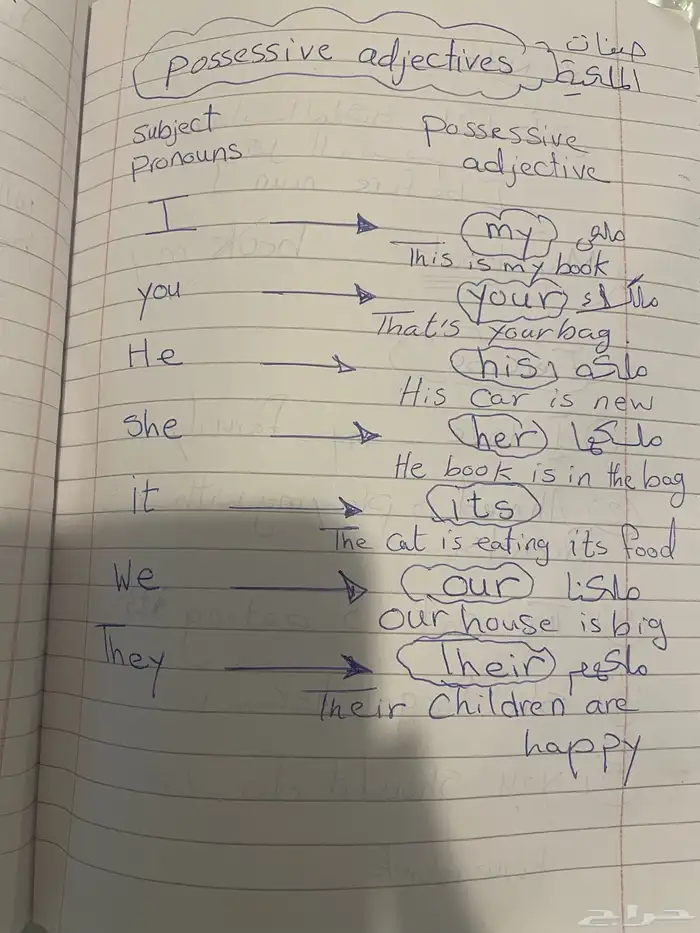 possessive adjectives صفات
الملكية
subject
pronouns
possessive
adjective
I my ملكي
This is my book
you your ملكك
That's your bag.
He his ملكه
His car is new
she her ملكها
He book is in the bag
it its
The cat is eating its food
We our ملكنا
our house is big
They Their ملكهم
Their children are
happy
حراج